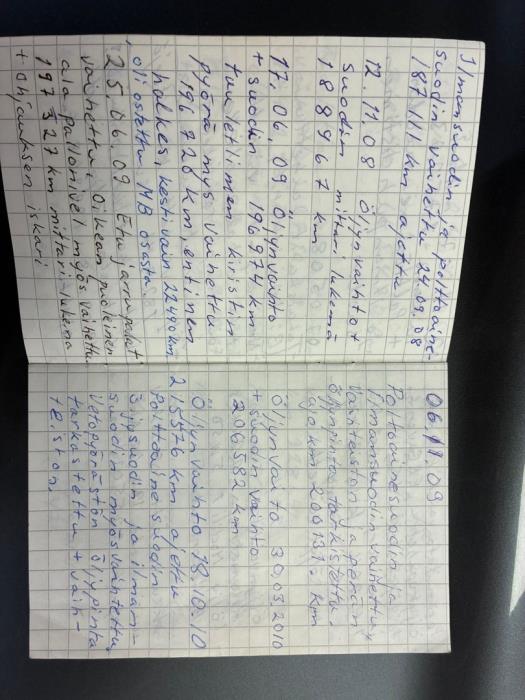 Ilmansuodin ja polttoaine-
suodin vaihettu 24.09.08
187 111 km ajettu
12.11.08 Öljynvaihto+
suodin mittari lukema
188967 km
17.06.09 Öljynvaihto
+ suodin 196974 km
tuuletlimen kiristin
pyörä myös vaihettu
196728 km, entinen
halkes, kesti vain 22400 km
, oli ostettu MB osasta.
25.06.09 Etu jarrupalat
vaihettu, Oikean puoleinen
ala pallonivel myös vaihettu
197327 km mittari-lukema
+ ohjauksen iskari
06.11.09
Poltoainesuodin ja
ilmansuodin vaihettu,
Vaihteiston ja perän
öljynpintos tarkistettu,
ajo km 200131:- km
Öljyn vaito 30,03,2010
+ suodin vaihto
206582 km
Öljyn vaihto 18.10.10
215576 km ajettu
Polttoaine suodin
öljysuodin ja ilman-
suodin myös vaihtettu,
vetopyörästön öljypinta
tarkastettu + vaih-
teiston,